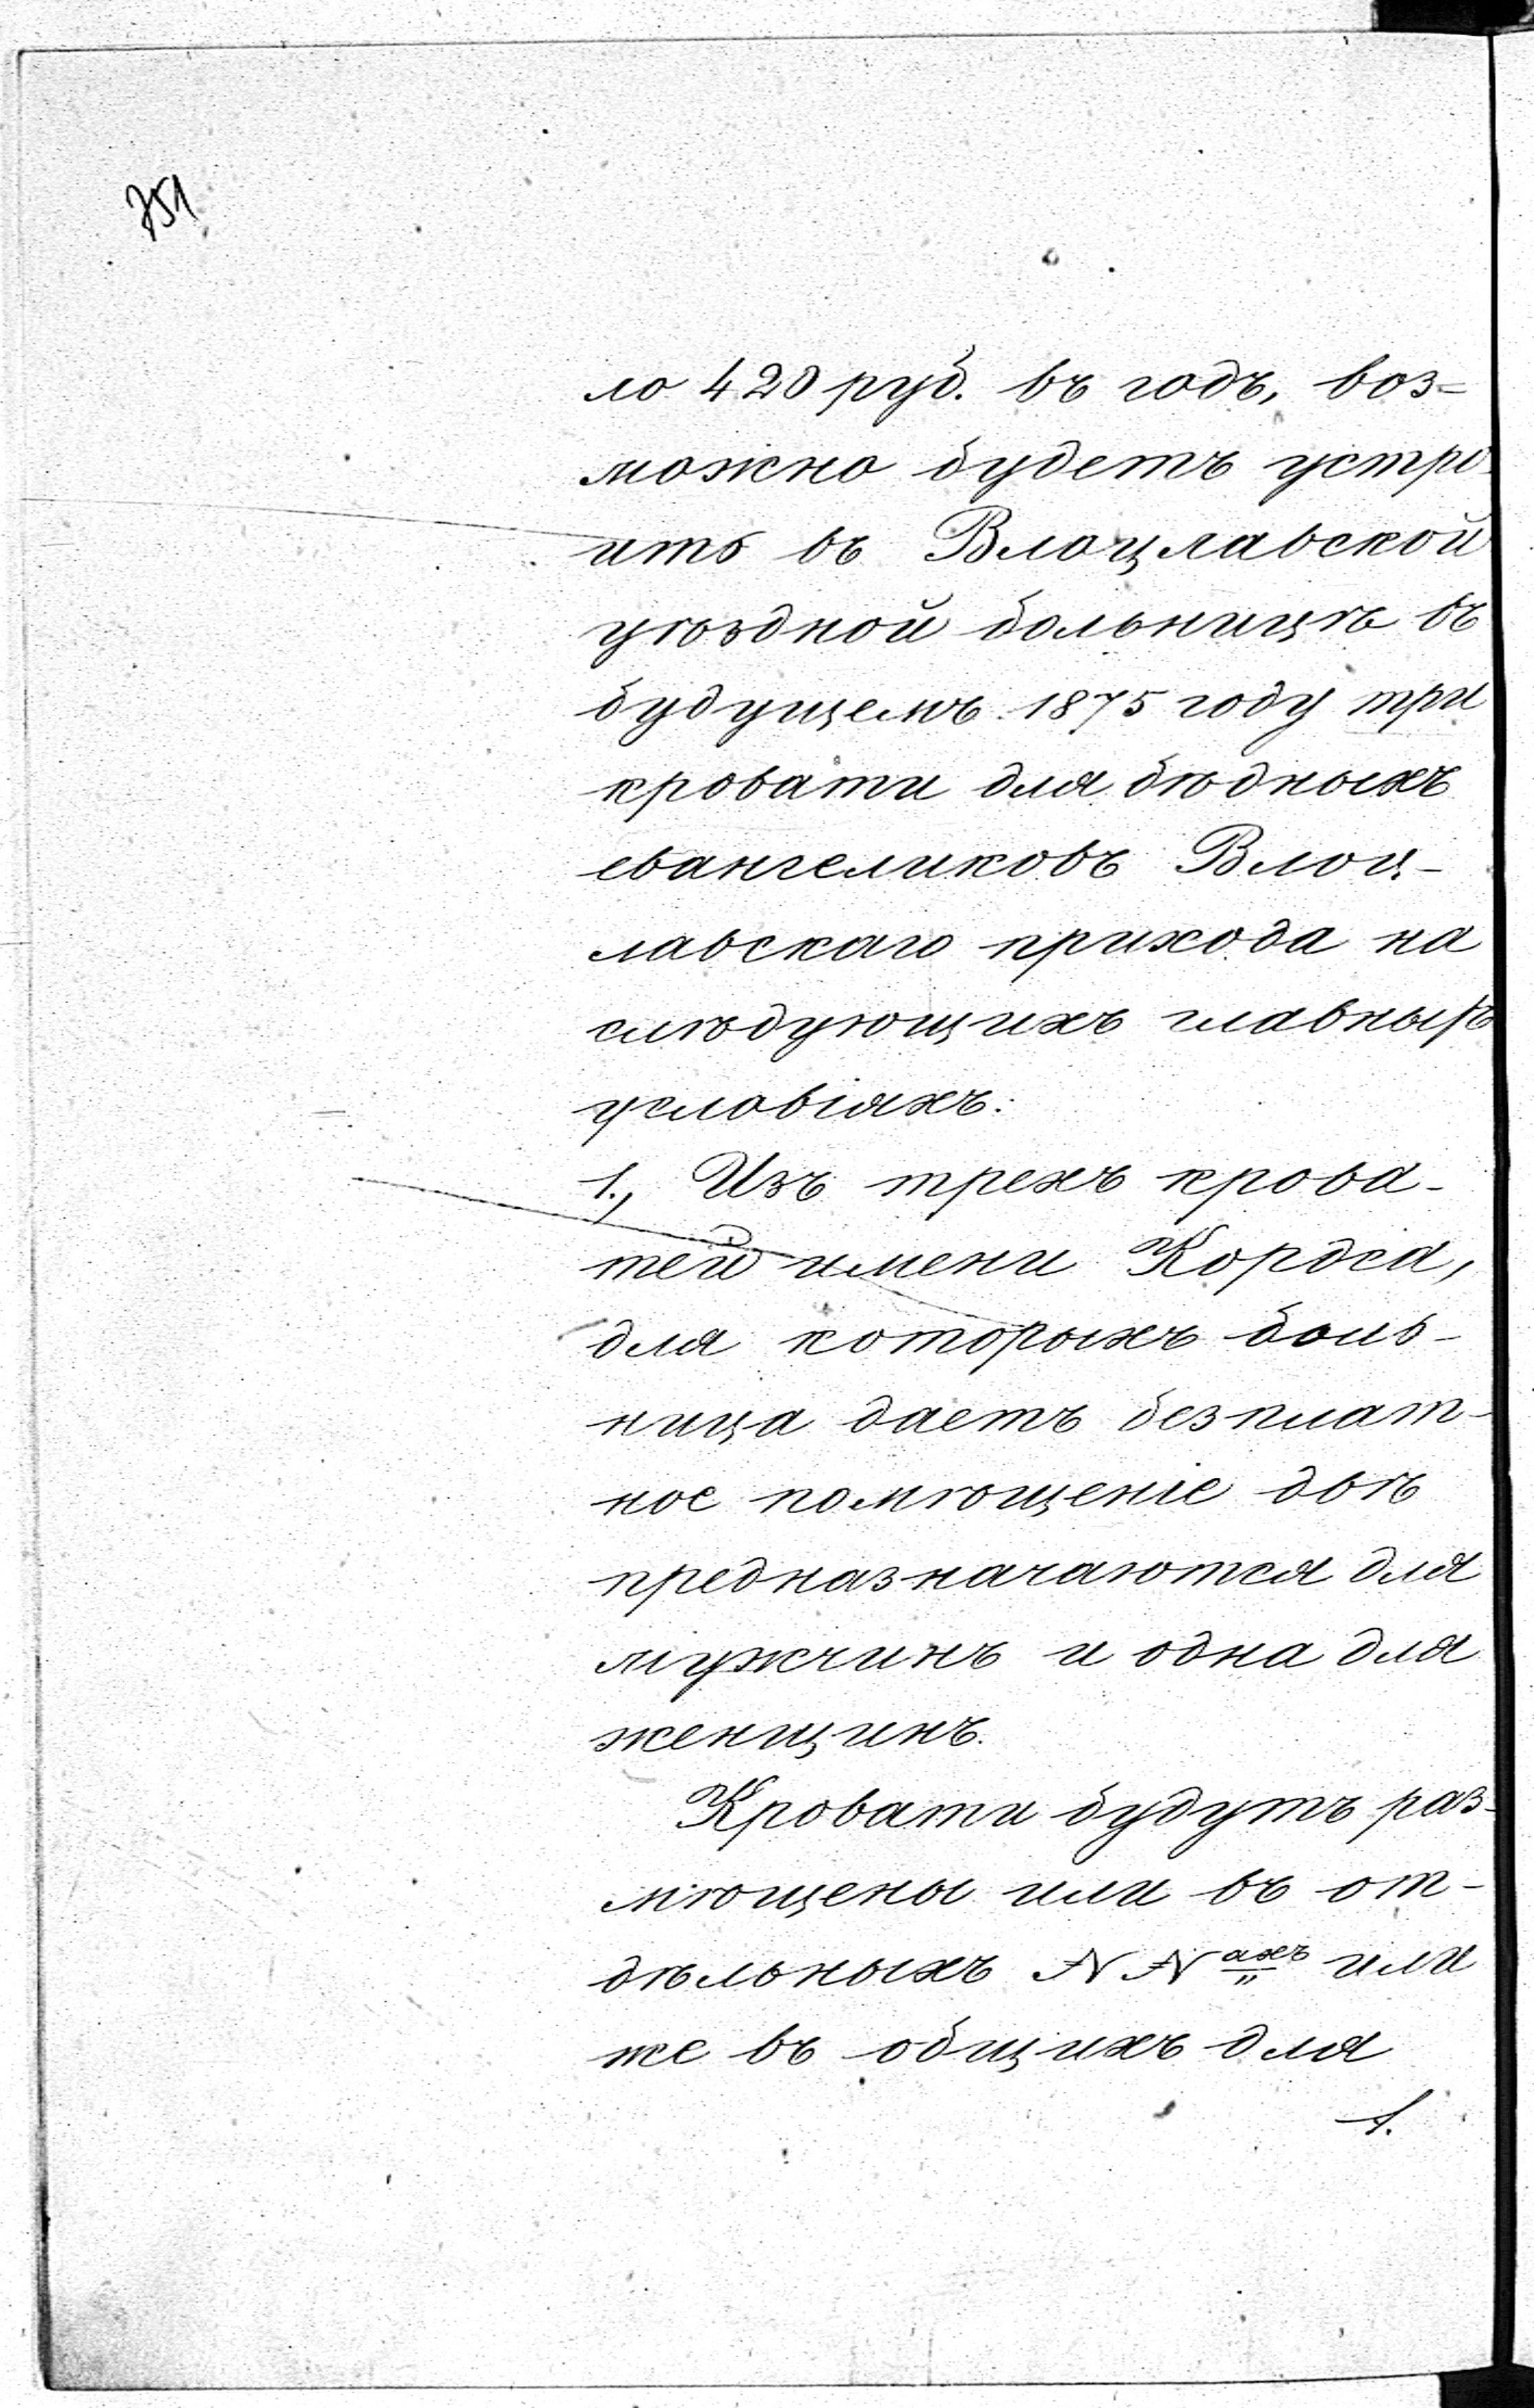 751
ло 420 руб. въ годъ, воз=
можно будетъ устро-
ить въ Влоцлавской
уѣздной больницѣ въ
будущемъ 1875 году три
кровати для бѣдныхъ
евангеликовъ Влоц-
лавскаго прихода на
слѣдующихъ главныхъ
условіяхъ:
1., Изъ трехъ крова-
тей имени Кордса,
для которыхъ боль-
ница даетъ безплат-
ное помѣщеніе двѣ
предназначаются для
мужчинъ и одна для
женщинъ.
Кровати будутъ раз-
мѣщены или въ от-
дѣльныхъ NN ахъ или
же въ общихъ для
1.